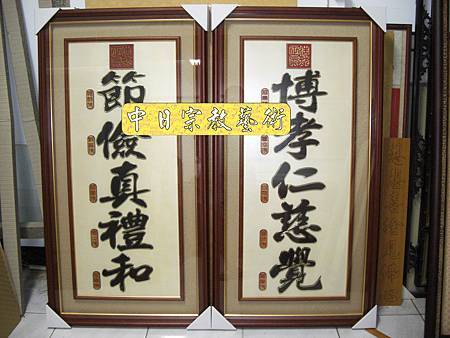 博孝仁慈覺
節儉真禮和
中日宗教藝術